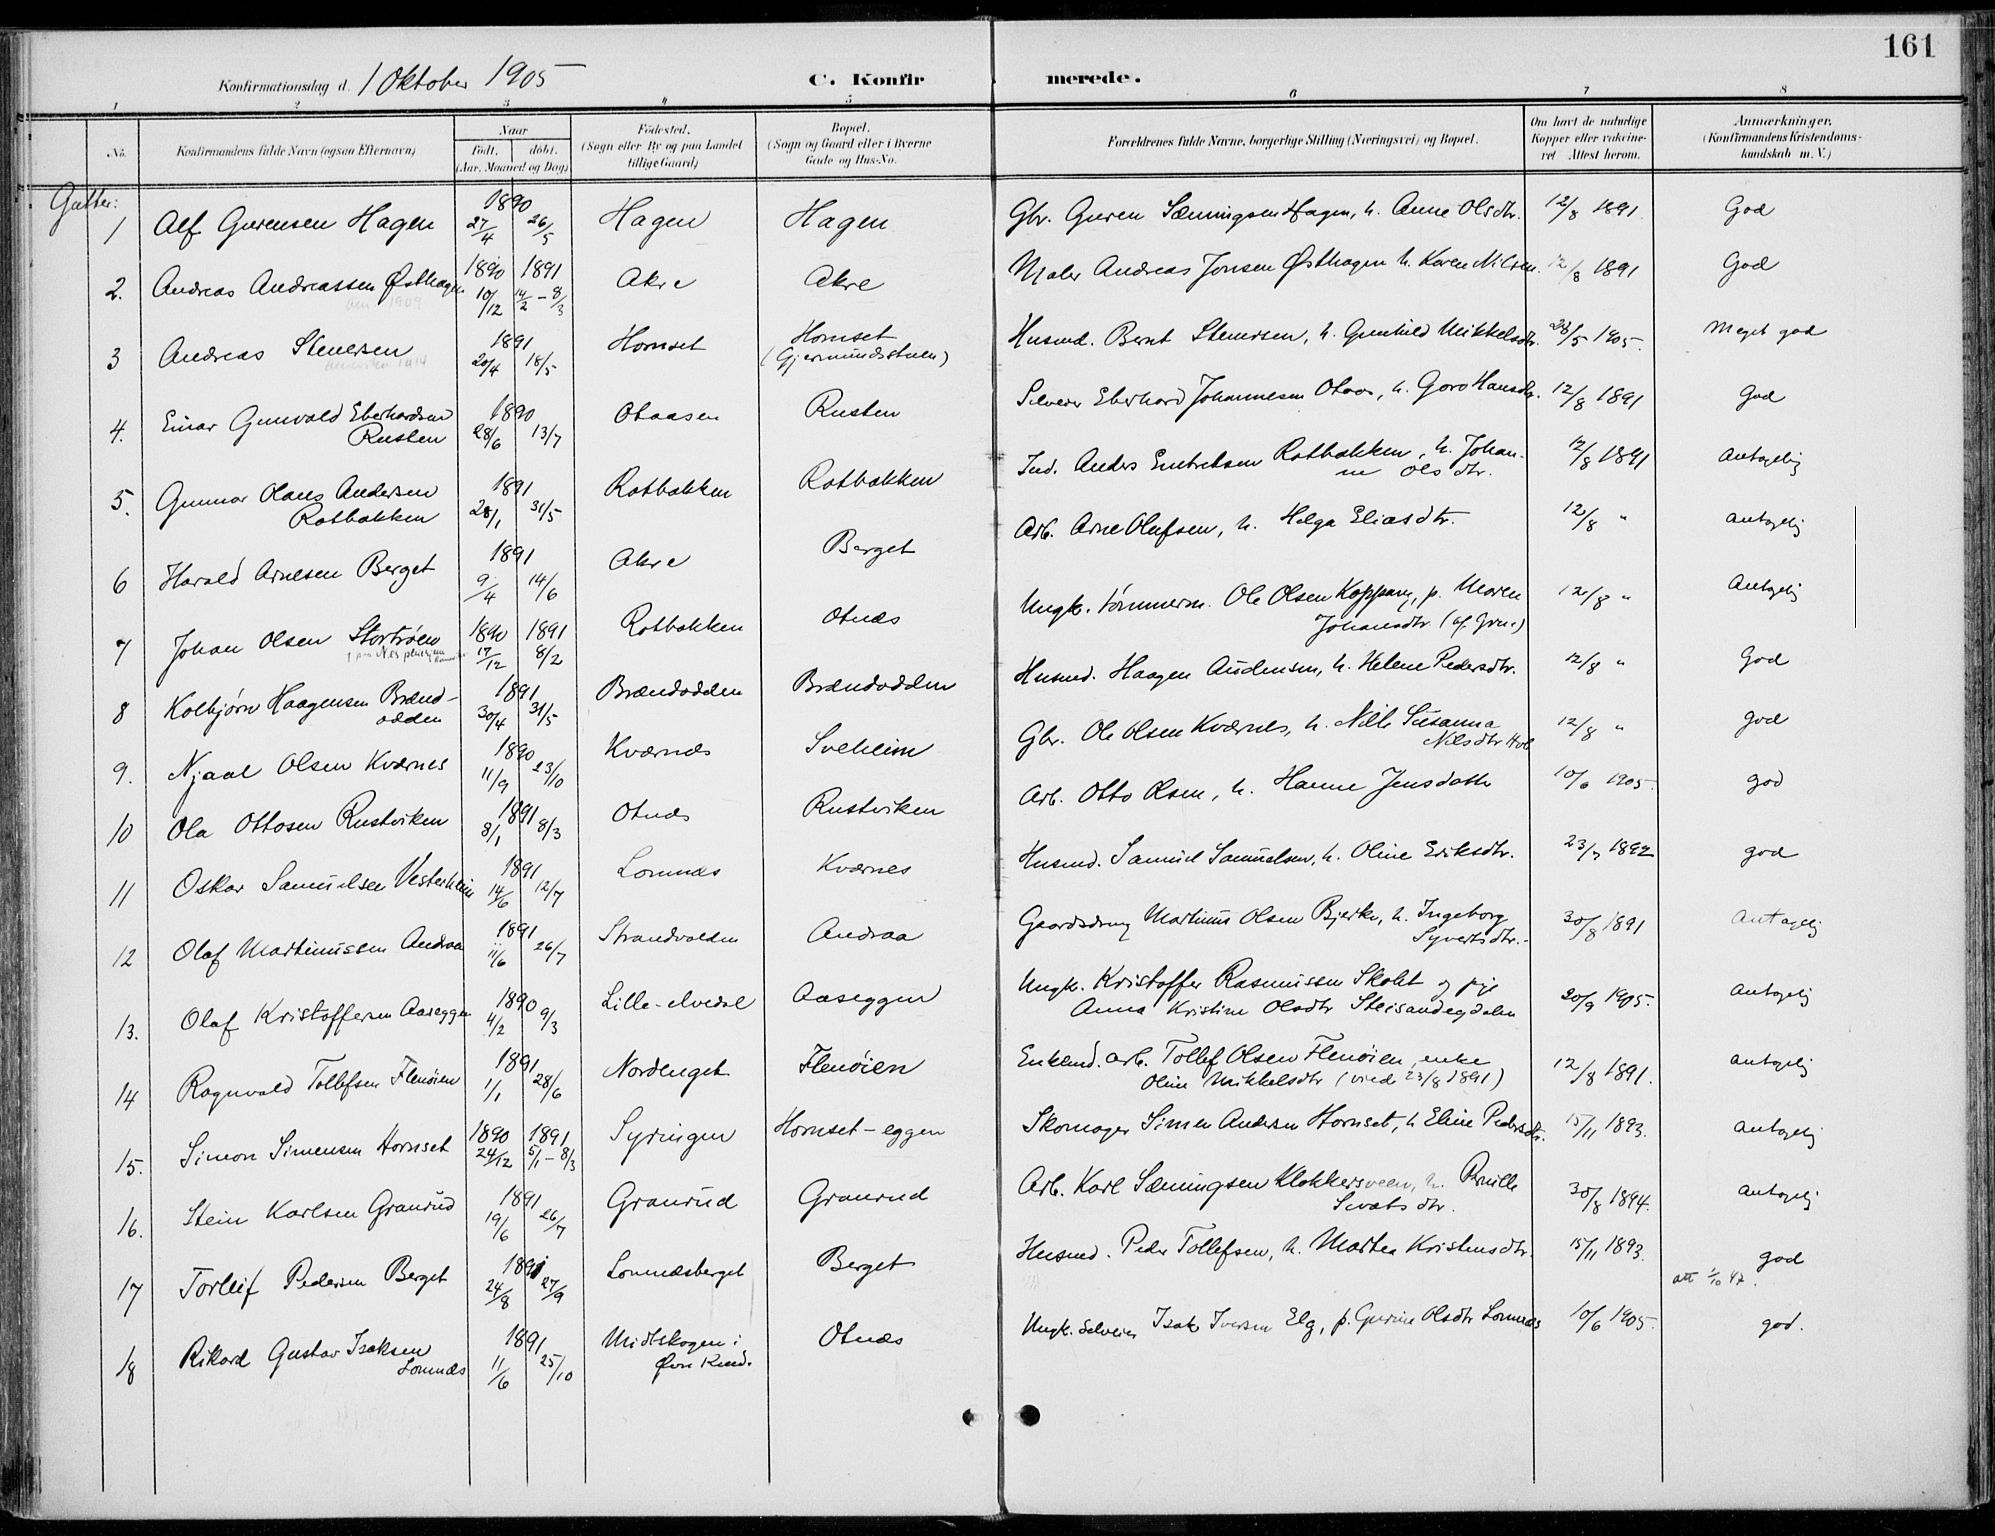 161
Konfirmationsdag d. 1 Oktober 1905
C. Konfir merede.
1 2 3 4 5 6 7 8
No.
Konfirmandens fulde Navn (ogsaa Efternavn)
Naar
Födt. döbt.
(Aar, Maaned og Dag)
Födested.
(Sogn eller By og paa Landet
tillige Gaard)
Bopæl.
(Sogn og Gaard eller i Byerne
Gade og Hus-No.
Forældrenes fulde Navne, borgerlige Stilling (Næringsvei) og Bopæl.
Om havt de naturlige
Kopper eller vaccine-
ret Attest herom.
Anmærkninger.
(Konfirmandens Kristendoms-
kundskab m. V.)
Gutter:
1 Alf Gurensen Hagen 1890 27/4 26/5 Hagen Hagen Gbr. Guren Sæmingsen Hagen, h. Anne Olsdtr. 12/8 1891. God
2. Andreas Andreassen Østhagen 1890 10/12 1891 14/2 - 8/3 Akre Akre Maler Andreas Jonsen Østhagen h. Karen Nilsen. 12/8 1891 God
3 Andreas Stenersen 1891 20/4 18/5 Hornset Hornset
(Gjermundsstuen) Husmd. Bernt Stenersen, h. Gunhild Mikkelsdtr. 23/5 1905. Meget god
4. Einar Gunvald Eberhardsen
Rusten 1890 28/6 13/7 Otaasen Rusten Selveier Eberhard Johannesen Otaas, h. Goro Hansdtr. 12/8 1891 God
5. Gunnar Olaus Andersen
Ratbakken 1891 28/1 31/5 Ratbakken Ratbakken Ind. Anders Embretsen Ratbakken, h. Johan-
ne Olsdtr. 12/8 1891 Antagelig
6 Harald Arnesen Berget 1891 9/4 14/6 Akre Berget Arb. Arne Olufsen, h. Helga Eliasdtr. 12/8 " antagelig
7 Johan Olsen Stortrøen 1890 17/12 1891 8/2 Ratbakken Otnæs Ungk. tømmerm. Ole Olsen Koppang, p. Maren
Johansdtr. 12/8 " Antagelig
8 Kolbjørn Haagensen Brænd-
odden 1891 30/4 31/5 Brændodden Brændodden Husmd. Haagen Audensen, h. Helene Pedersdtr. 12/8 " God
9. Njaal Olsen Kværnes 1890 11/9 23/10 Kværnæs Solheim Gbr. Ole Olsen Kværnes, h. Nille Susanna
Nilsdtr 12/8 " god
10 Ola Ottosen Rustviken 1891 8/1 8/3 Otnæs Rustviken Arb. Otto Olsen, h. Hanne Jensdatter 10/6 1905. god
11 Oskar Samuelsen Vesterheim 1891 14/6 12/7 Lomnæs Kværnes Husmd. Samuel Samuelsen, h. Oline Eriksdtr. 23/7 1892 god
12 Olaf Martinussen Andraa 1891 11/6 26/7 Strandvolden Andraa Gaardsdreng Martinus Olsen Bjerke, h. Ingeborg
Syvertsdtr. 30/8 1891 Antagelig
13. Olaf Kristoffersen Aaseggen 1890 4/2 9/3 Lille-elvedal Aaseggen Ungk. Kristoffer Rasmussen Skaht og pige
Anna Kristine Olsdtr 20/9 1905. Antagelig
14 Ragnvald Tollefsen Flenøien 1891 1/1 28/6 Nordenget Flenøien Enkemd. arb. Tollef Olsen Flenøien, enke
Oline Mikkelsdtr (vied 23/8 1891) 12/8 1891. antagelig
15. Simon Simensen Hornset 1890 24/12 1891 5/1 - 8/3 Syringen Hornset-eggen Skomager Simen Andersen Hornset, h Eline Pedersdtr. 15/11 1893. antagelig
16. Stein Karlsen Granrud 1891 19/6 26/7 Granrud Granrud Arb. Karl Sæmingsen Klokkersveen, h. Pernille
Sivatsdtr. 30/8 1894. antagelig
17 Torleif Pedersen Berget 1891 24/8 27/9 Lomnæsberget Berget Husmd. Peder Tollefsen, h. Martea Kristensdtr. 15/11 1893. god
att 1/10 47.
18 Rikard Gustav Isaksen
Lomnæs 1891 11/6 25/10 Midtskogen i
Øvre Rend. Otnæs Ungk. Selveier Isak Iversen Elg, p. Gurine Olsdtr Lomnæs 10/6 1905. god.